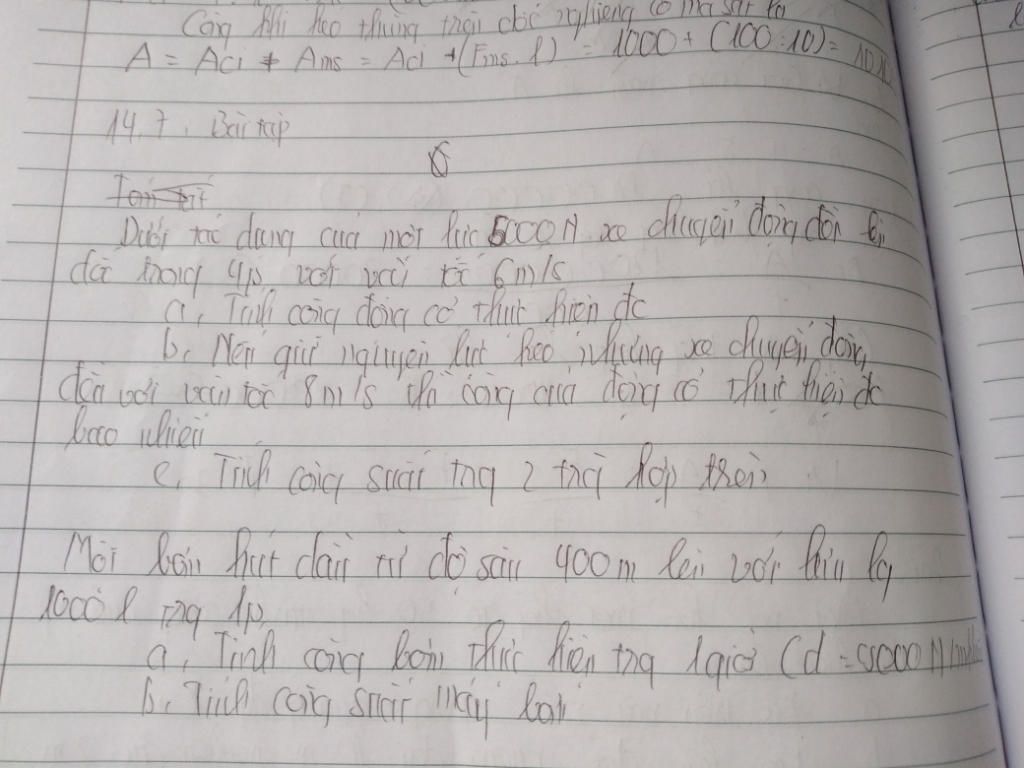 Công khi kéo thùng trên dốc nghiêng có ma sát là
A = Aci + Ams = Aci + (Fms. l) = 1000 + (100.10) =
14.7. Bài tập
Tóm tắt
Dưới tác dụng của một lực 5000N xe chuyển động đều lên
dốc trong 4p với vận tốc 6m/s
a, Tính công động cơ thực hiện đc
b, Nếu giữ nguyên lực kéo nhưng xe chuyển động
đều với vận tốc 8m/s thì công của động cơ thực hiện đc
bao nhiêu
c, Tính công suất trg 2 trg hợp trên
Một bơm hút dầu từ độ sâu 400m lên với lưu lg
1000 l trg 1p,
a, Tính công bơm thực hiện trg 1 giờ (d =
b, Tính công suất máy bơm